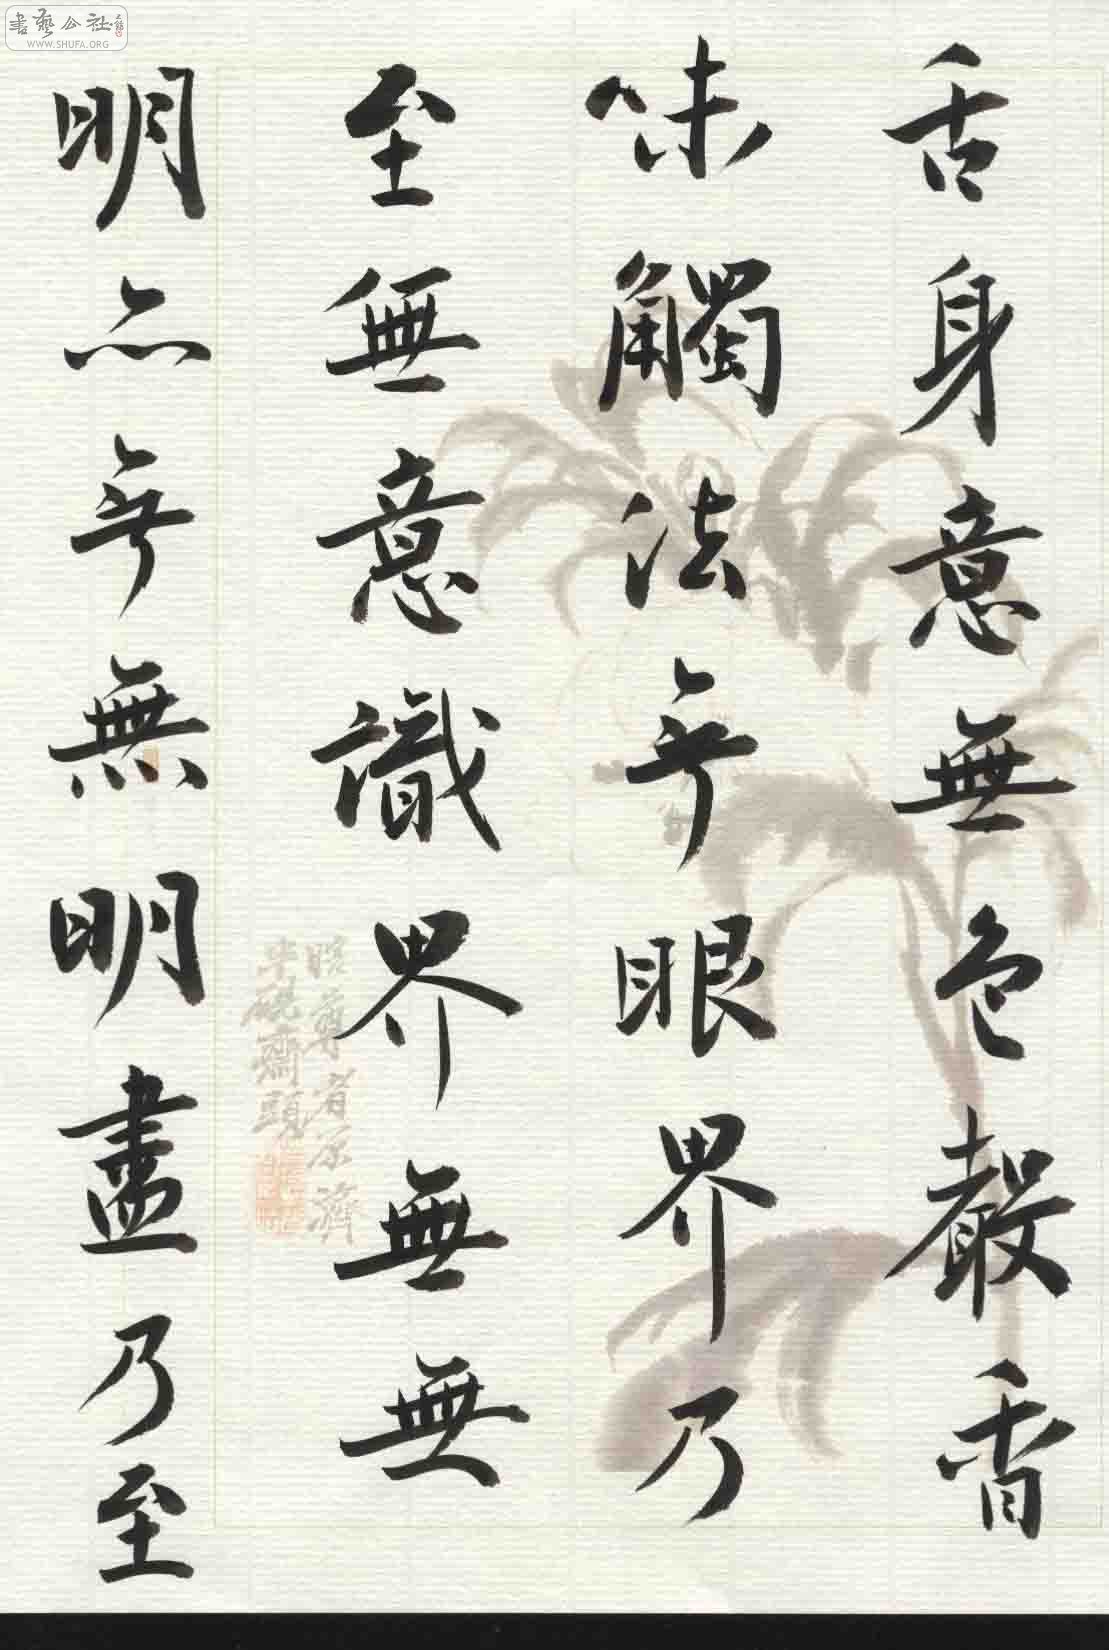 舌身意無色聲香
味觸法無眼界乃
至無意識界無無
明亦無無明盡乃至
瞎尊者原濟
半硯齋頭
書藝公社
WWW.SHUFA.ORG